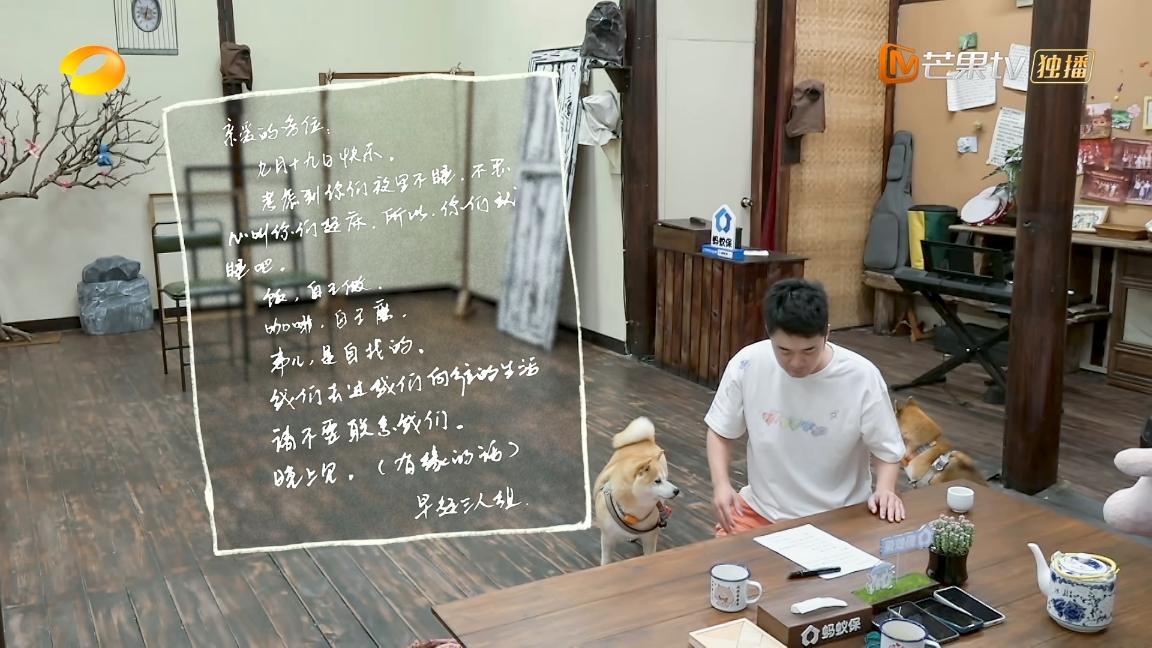 芒果tv 独播
亲爱的各位：
九月十九日快乐。
考虑到你们夜里不睡，不忍
心叫你们起床，所以，你们就
睡吧。
饭，自己做。
咖啡，自己磨。
事儿，是自找的。
我们去过我们向往的生活
请不要联系我们。
晚上见。（有缘的话）
早起三人组
蚂蚁保
蚂蚁保